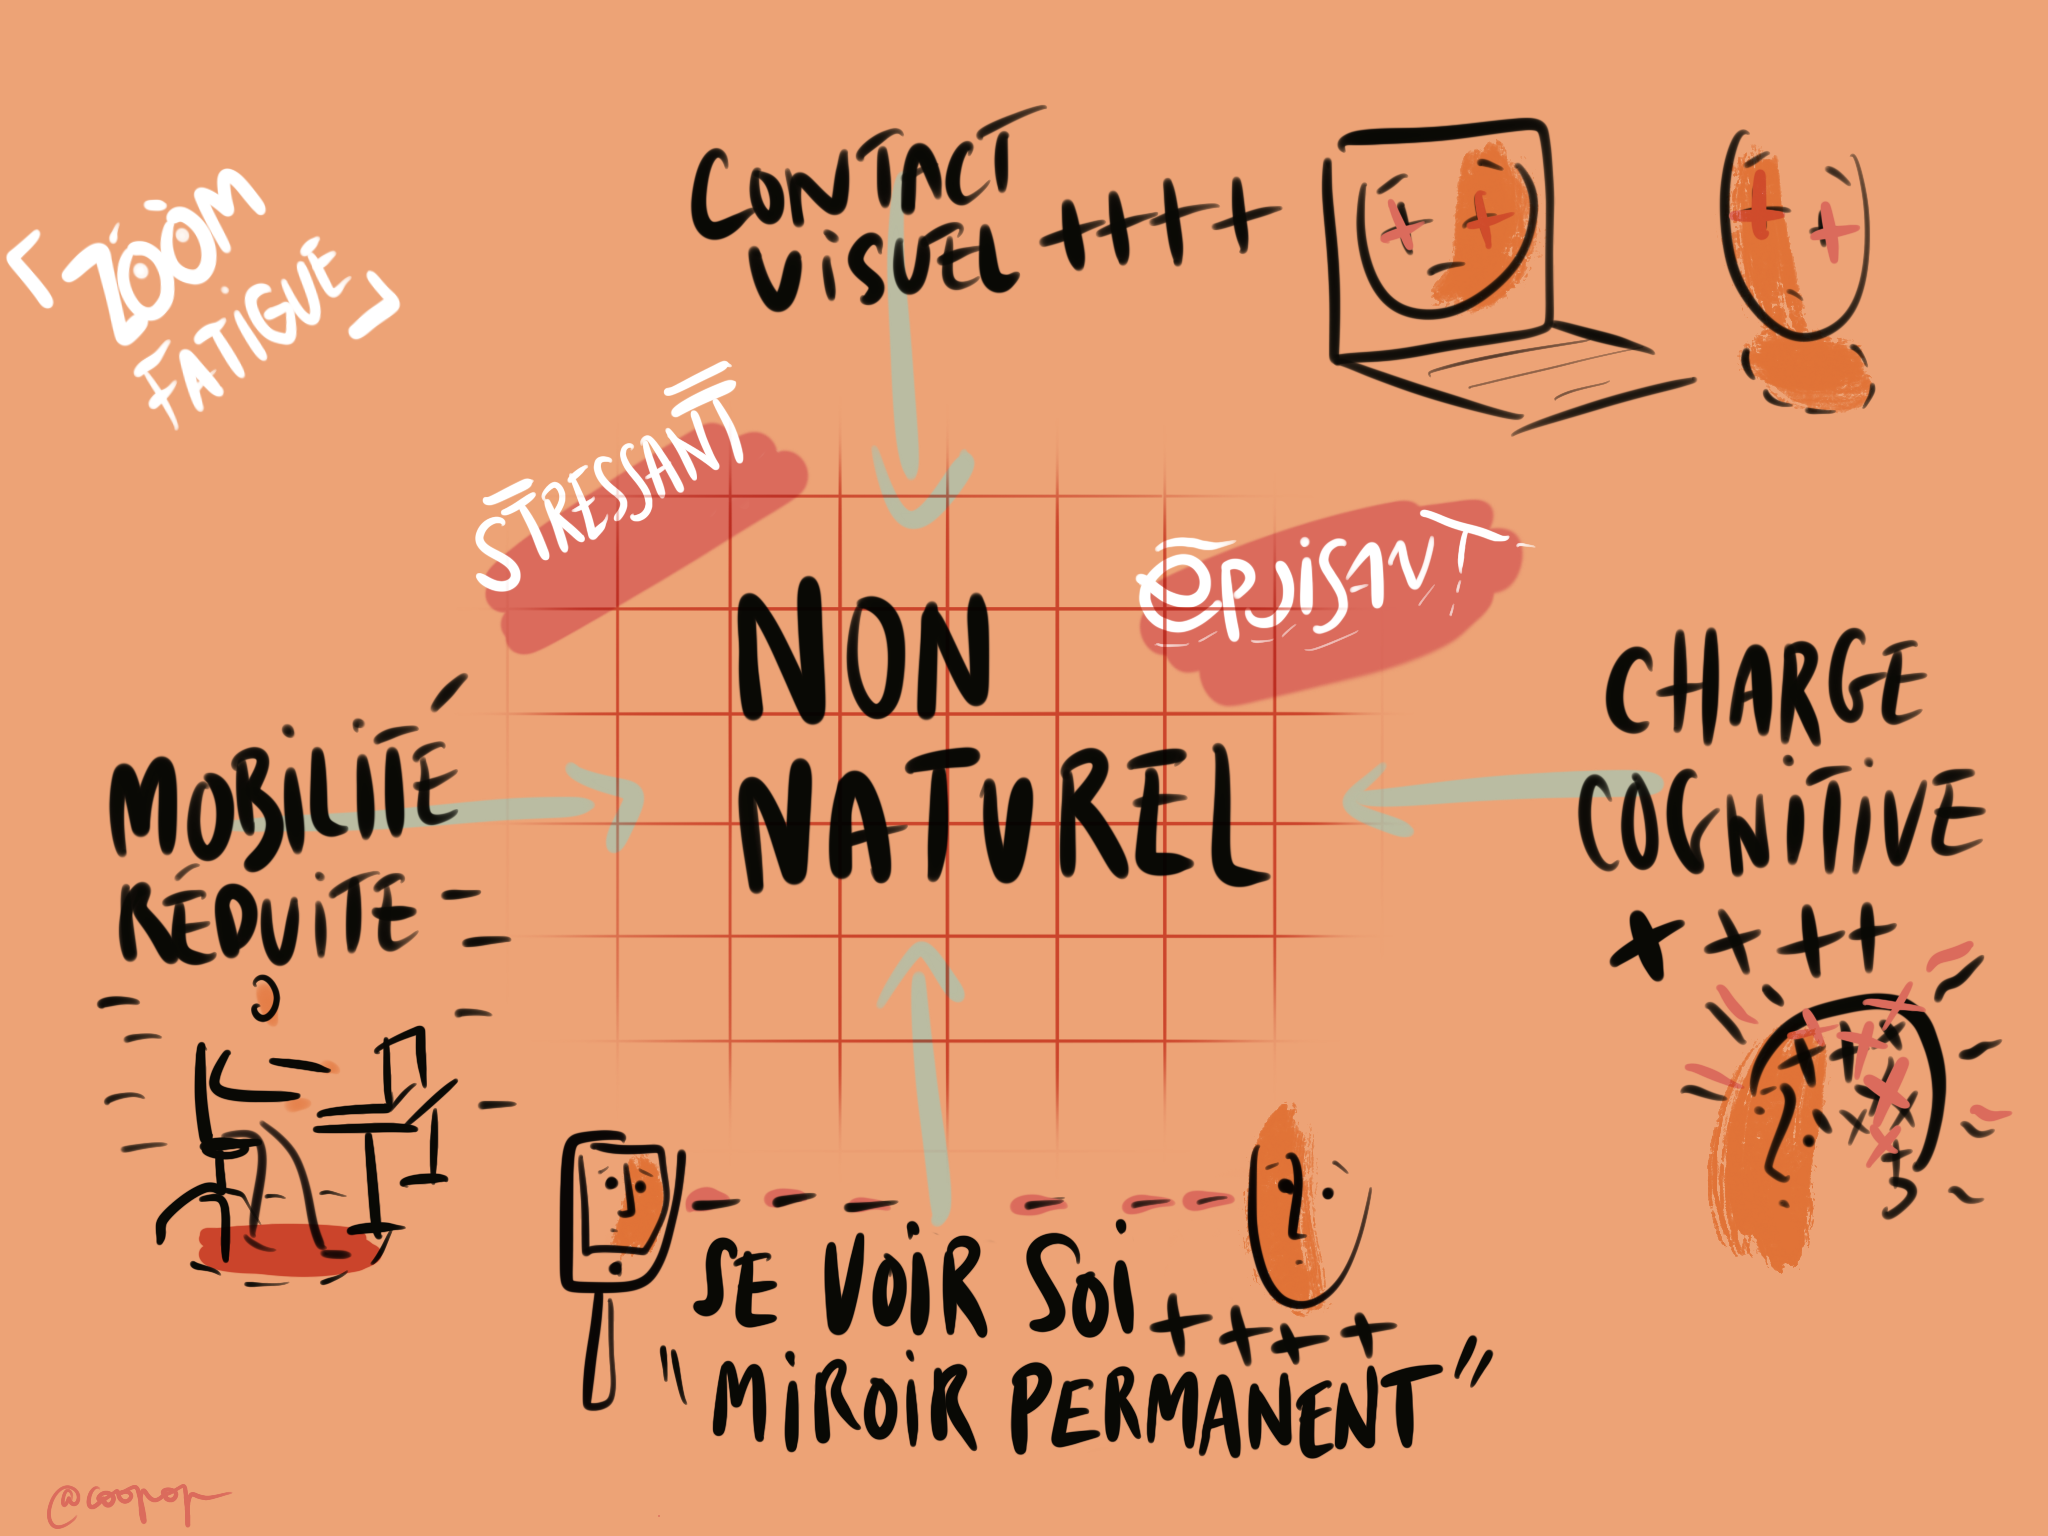 「ZOOM
FATIGUE」
CONTACT
VISUEL ++++
STRESSANT
ePUISANT
NON
NATUREL
MOBILITÉ
RÉDUITE - -
CHARGE
COGNITIVE
++++
SE VOIR SOI ++++
"MIROIR PERMANENT"
@coopop